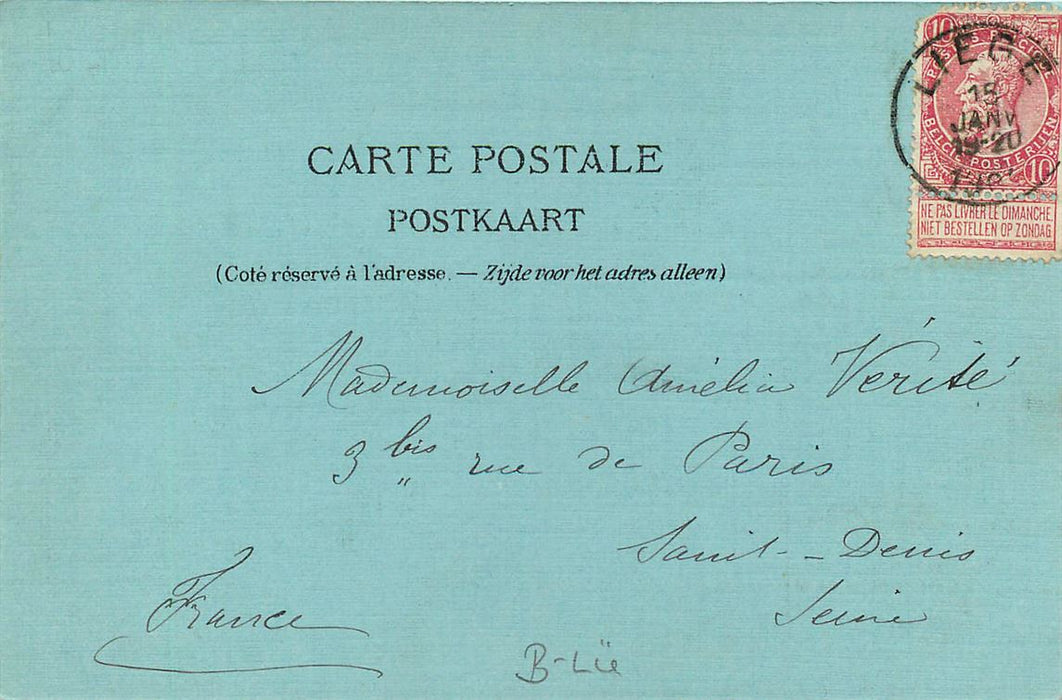 CARTE POSTALE
POSTKAART
(Coté réservé à l'adresse. — Zijde voor het adres alleen)
10
POSTES
BELGIË POSTERIJEN
10
NE PAS LIVRER LE DIMANCHE
NIET BESTELLEN OP ZONDAG
LIEGE
15
JANV
Mademoiselle Amélia Vérité
3 bis rue de Paris
Saint-Denis
Seine
France
B-Lïe